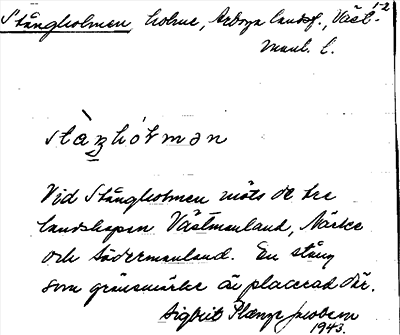 Stångholmen, holme, Arboga landsf., Väst-
manl. l.
Vid Stångholmen möts de tre
landskapen Västmanland, Närke
och Södermanland. En stång
som gränsmärke är placerad där.
Sigbrit Plænge Jacobson
1943.